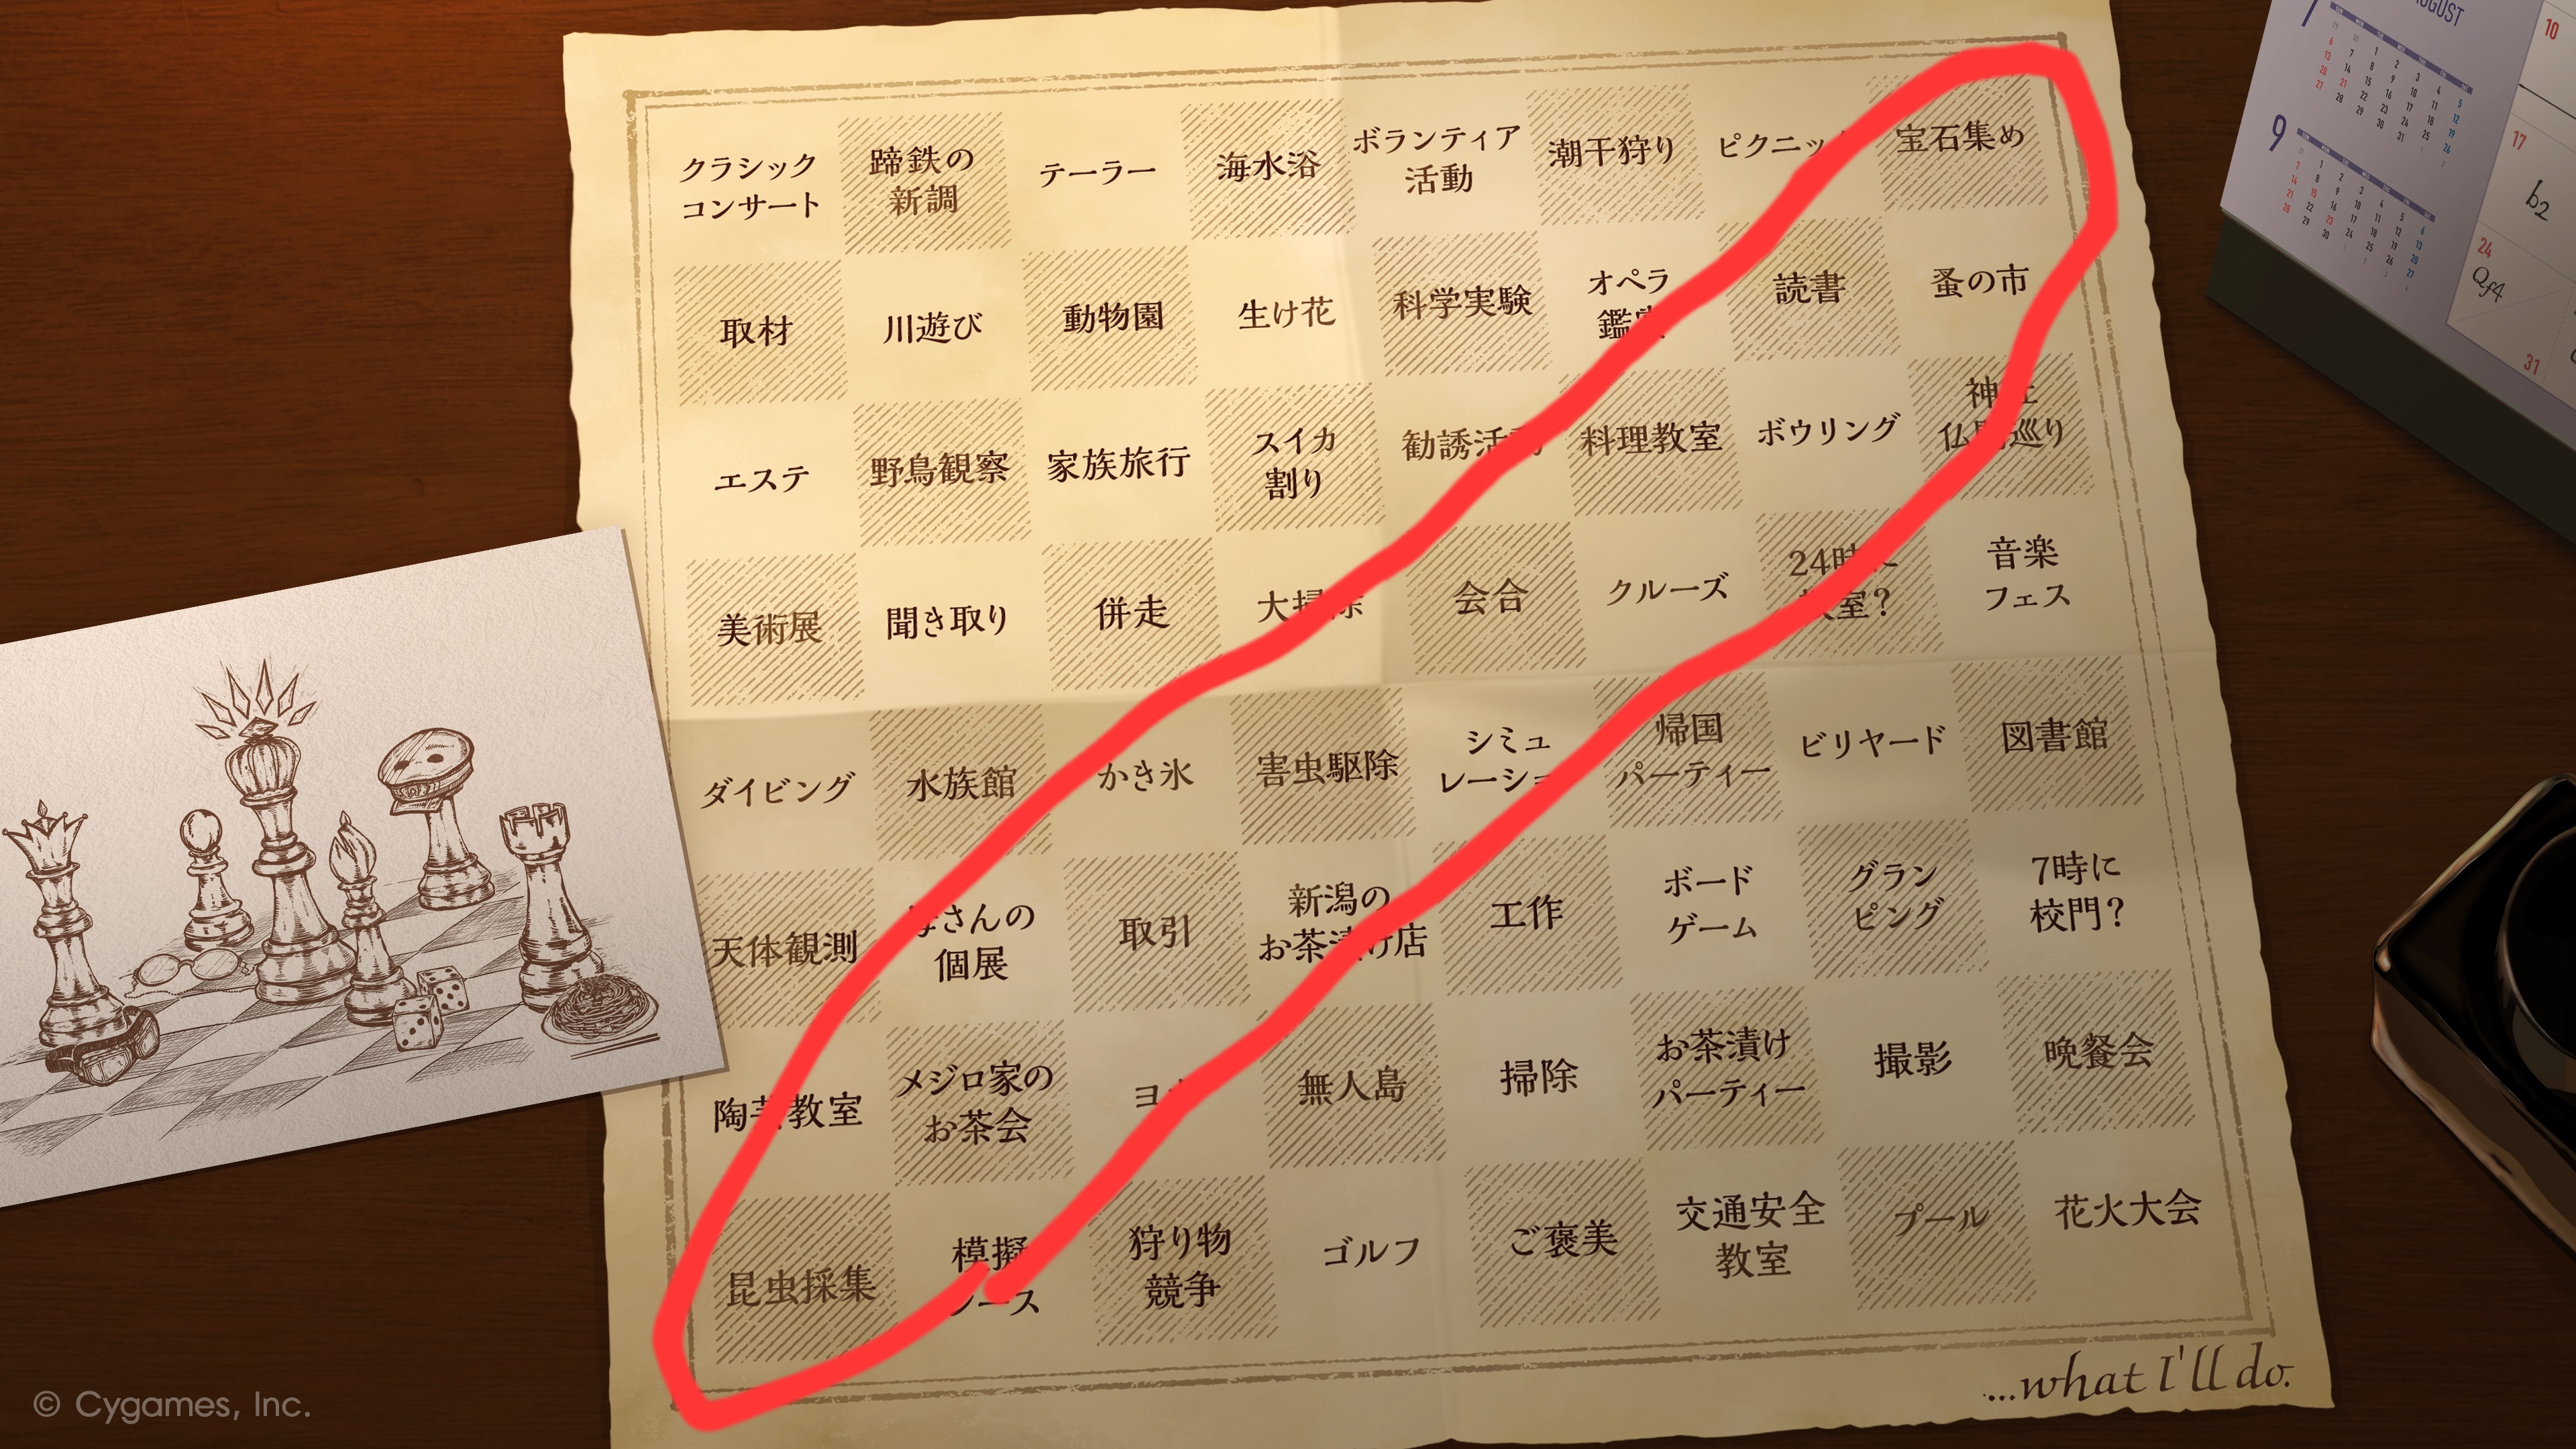 クラシック
コンサート
蹄鉄の
新調
テーラー
海水浴
ボランティア
活動
潮干狩り
ピクニッ
宝石集め
取材
川遊び
動物園
生け花
科学実験
オペラ
読書
蚤の市
エステ
野鳥観察
家族旅行
スイカ
割り
勧誘活
料理教室
ボウリング
美術展
聞き取り
併走
会合
クルーズ
音楽
フェス
ダイビング
水族館
かき氷
害虫駆除
シミュ
レーショ
帰国
パーティー
ビリヤード
図書館
天体観測
さんの
個展
取引
新潟の
お茶漬け店
工作
ボード
ゲーム
グラン
ピング
7時に
校門?
陶芸教室
メジロ家の
お茶会
無人島
掃除
お茶漬け
パーティー
撮影
晩餐会
昆虫採集
模擬
レース
狩り物
競争
ゴルフ
ご褒美
交通安全
教室
プール
花火大会
...what I'll do.
AUGUST
7
9
10
17
b2
24
Qf4
31
© Cygames, Inc.